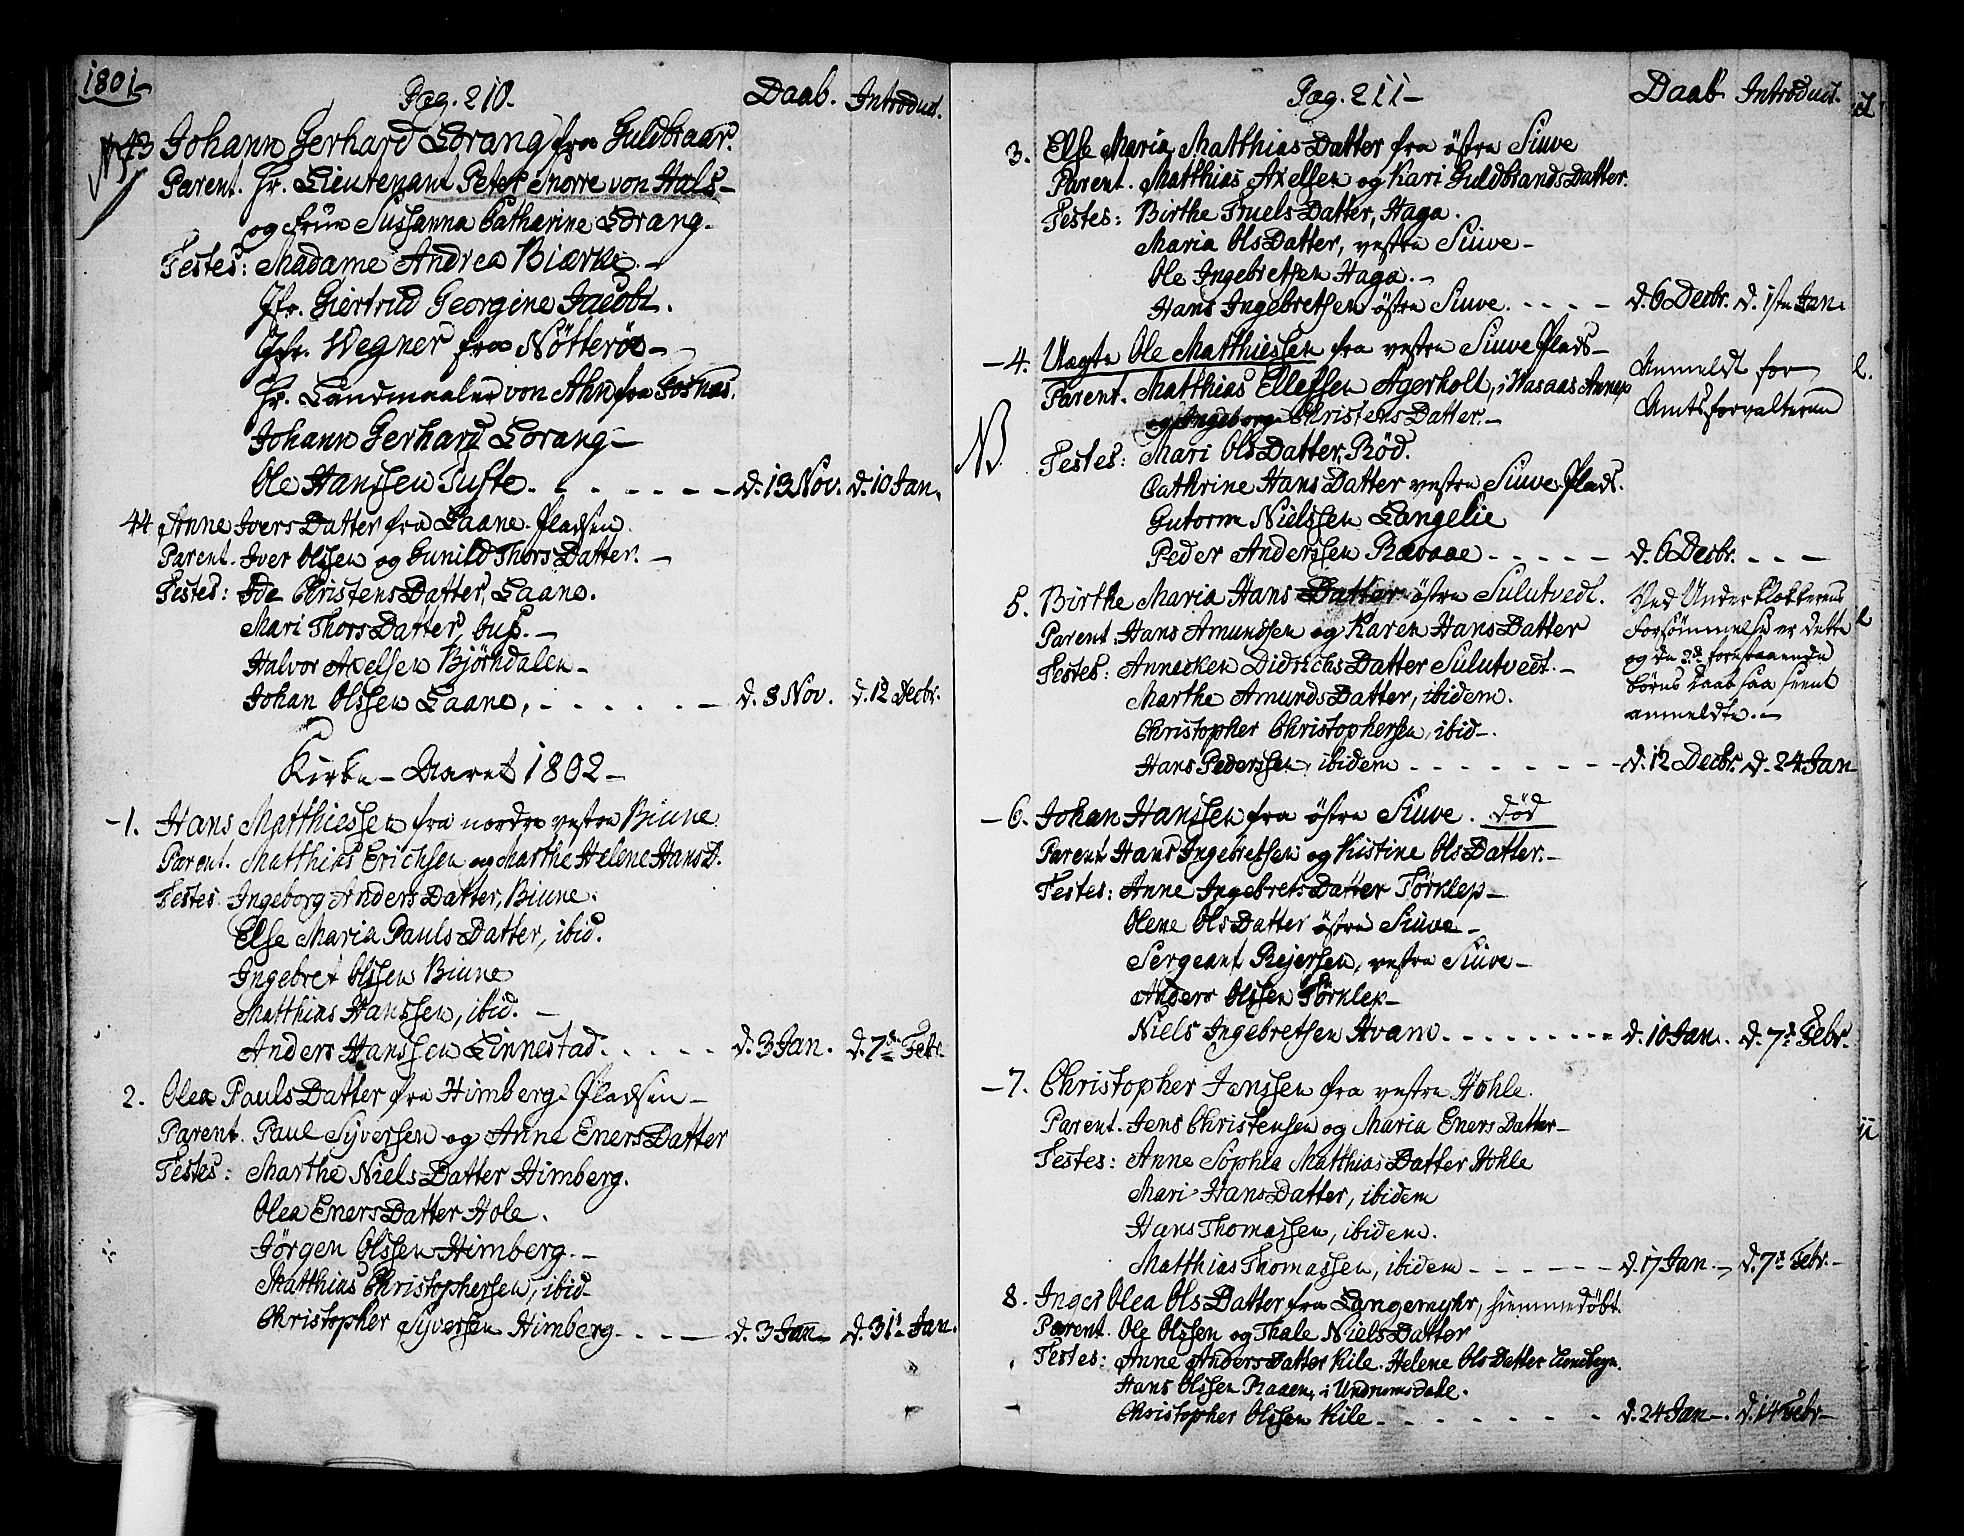 1801
Pag. 210. Daab. Introduct.
43 Johann Gerhard Lorang fra Guldkraar.
Parent. Hr. Lieutenant Peter Snorre von Hals
og Frue Susanna Catharine Lorang.
Testes: Madame Andrea Biærke.
Jfr. Giertrud Georgine Jacobi.
Jfr. Wegner fra Nötteröe
Hr. Landmaaler von Ahn fra Fosnæs.
Johann Gerhard Lorang
Ole Hanssen Tufte. d. 13 Nov. d. 10 Jan.
44 Anne Ivers Datter fra Laane Pladsen
Parent. Iver Olssen og Gunild Thors Datter.
Testes: Ide Christens Datter, Laane.
Mari Thors Datter,
Halvor Axelsen Björndalen
Johan Olssen Laane, d. 8 Nov. d. 12 Decbr.
Kirke-Aaret 1802
1. Hans Matthiessen fra nordre vestre Biune
Parent. Matthias Erichsen og Marthe Helene Hans D.
Testes Ingeborg Anders Datter, Biune.
Else Maria Pauls Datter, ibid.
Ingebret Olssen Biune
Matthias Hanssen, ibid.
Anders Hanssen Linnestad. d. 3 Jan. d. 7de Febr.
2. Olea Pauls Datter fra Himberg Pladsen
Parent. Paul Syversen og Anne Eners Datter
Testes: Marthe Niels Datter Himberg.
Olea Eners Datter Hole.
Jörgen Olssen Himberg.
Matthias Christophersen, ibid
Christopher Syversen Himberg. d. 3 Jan d. 31te Jan.
Pag. 211 Daab Introduct.
3. Else Maria Matthias Datter fra östre Siuve
Parent. Matthias Axelsen og Kari Guldbrands Datter.
Testes: Birthe Truels Datter, Haga.
Maria Ols Datter, vestre Siuve
Ole Ingebretsen Haga.
Hans Ingebretsen östre Siuve. d. 6 Decbr. d. 1ste Jan.
4. Uægte Ole Matthiessen fra vestre Siuve Plads Anmeldt for
Parent. Matthias Ellefsen Agerholt, i Wasaas Annex Amtsforvalteren
og Ingeborg Christens Datter.
NB Testes: Mari Ols Datter, Röd.
Cathrine Hans Datter vestre Siuve Plads.
Gutorm Nielssen Langelie
Peder Anderssen Ravaae d. 6 Decbr.
5. Birthe Maria Hans Datter östre Sulutvedt. Ved Underklokkerens
Parent Hans Amundsen og Karen Hans Datter Forsömmelse er dette
Testes: Annecken Didrichs Datter Sulutvedt. og de 2de forestaaende
Marthe Amunds Datter, ibidem. börns Daab saa seent
Christopher Christophersen, ibid. anmeldte.
Hans Pederssen ibidem d. 12 Decbr. d. 24 Jan
6. Johan Hanssen fra östre Siuve. död
Parent Hans Ingebretsen og Kistine Ols Datter.
Testes: Anne Ingebrets Datter Törklep
Olene Ols Datter östre Siuve
Sergeant Rejersen, vestre Siuve
Anders Olssen Törklep
Niels Ingebretsen Hvam d. 10 Jan. d. 7de Febr.
7. Christopher Jenssen fra vestre Hohle.
Parent. Jens Christensen og Maria Eners Datter
Testes: Anne Sophia Matthias Datter Hohle
Mari Hans Datter, ibidem
Hans Thomassen, ibidem.
Matthias Thomassen, ibidem d. 17 Jan. d. 7de Febr.
8. Inger Olea Ols Datter fra Langemyhr, hiemmedöbt
Parent. Ole Olssen og Thale Niels Datter
Testes: Anne Anders Datter Kile. Helene Ols Datter
Hans Olssen Raaen, i Undrumsdale.
Christopher Olssen Kile d. 24 Jan. d. 14 Febr.